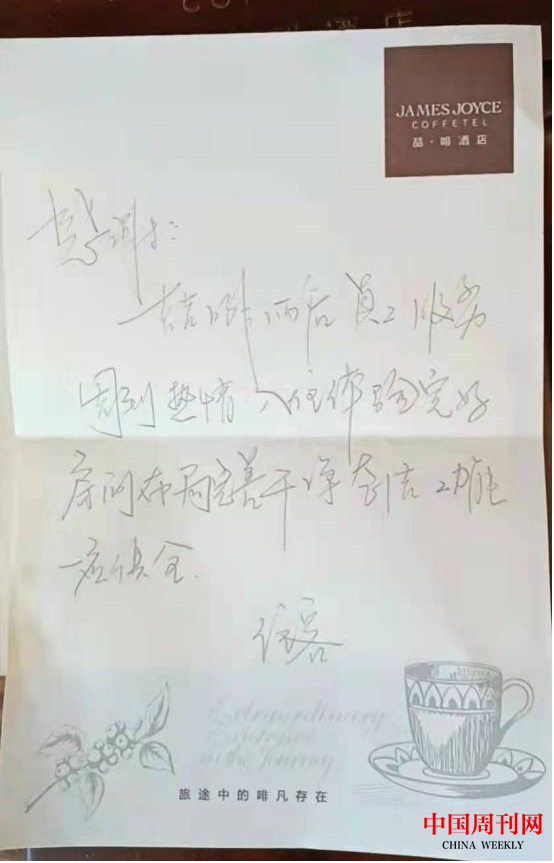 JAMES JOYCE
COFFETEL
喆·啡酒店
感谢:
喆啡酒店员工服务
周到热情入住体验完好
房间布局完善干净整洁功能
一应俱全.
住客
Extraordinary
Existence
in the Journey
旅途中的啡凡存在
中国周刊网
CHINA WEEKLY